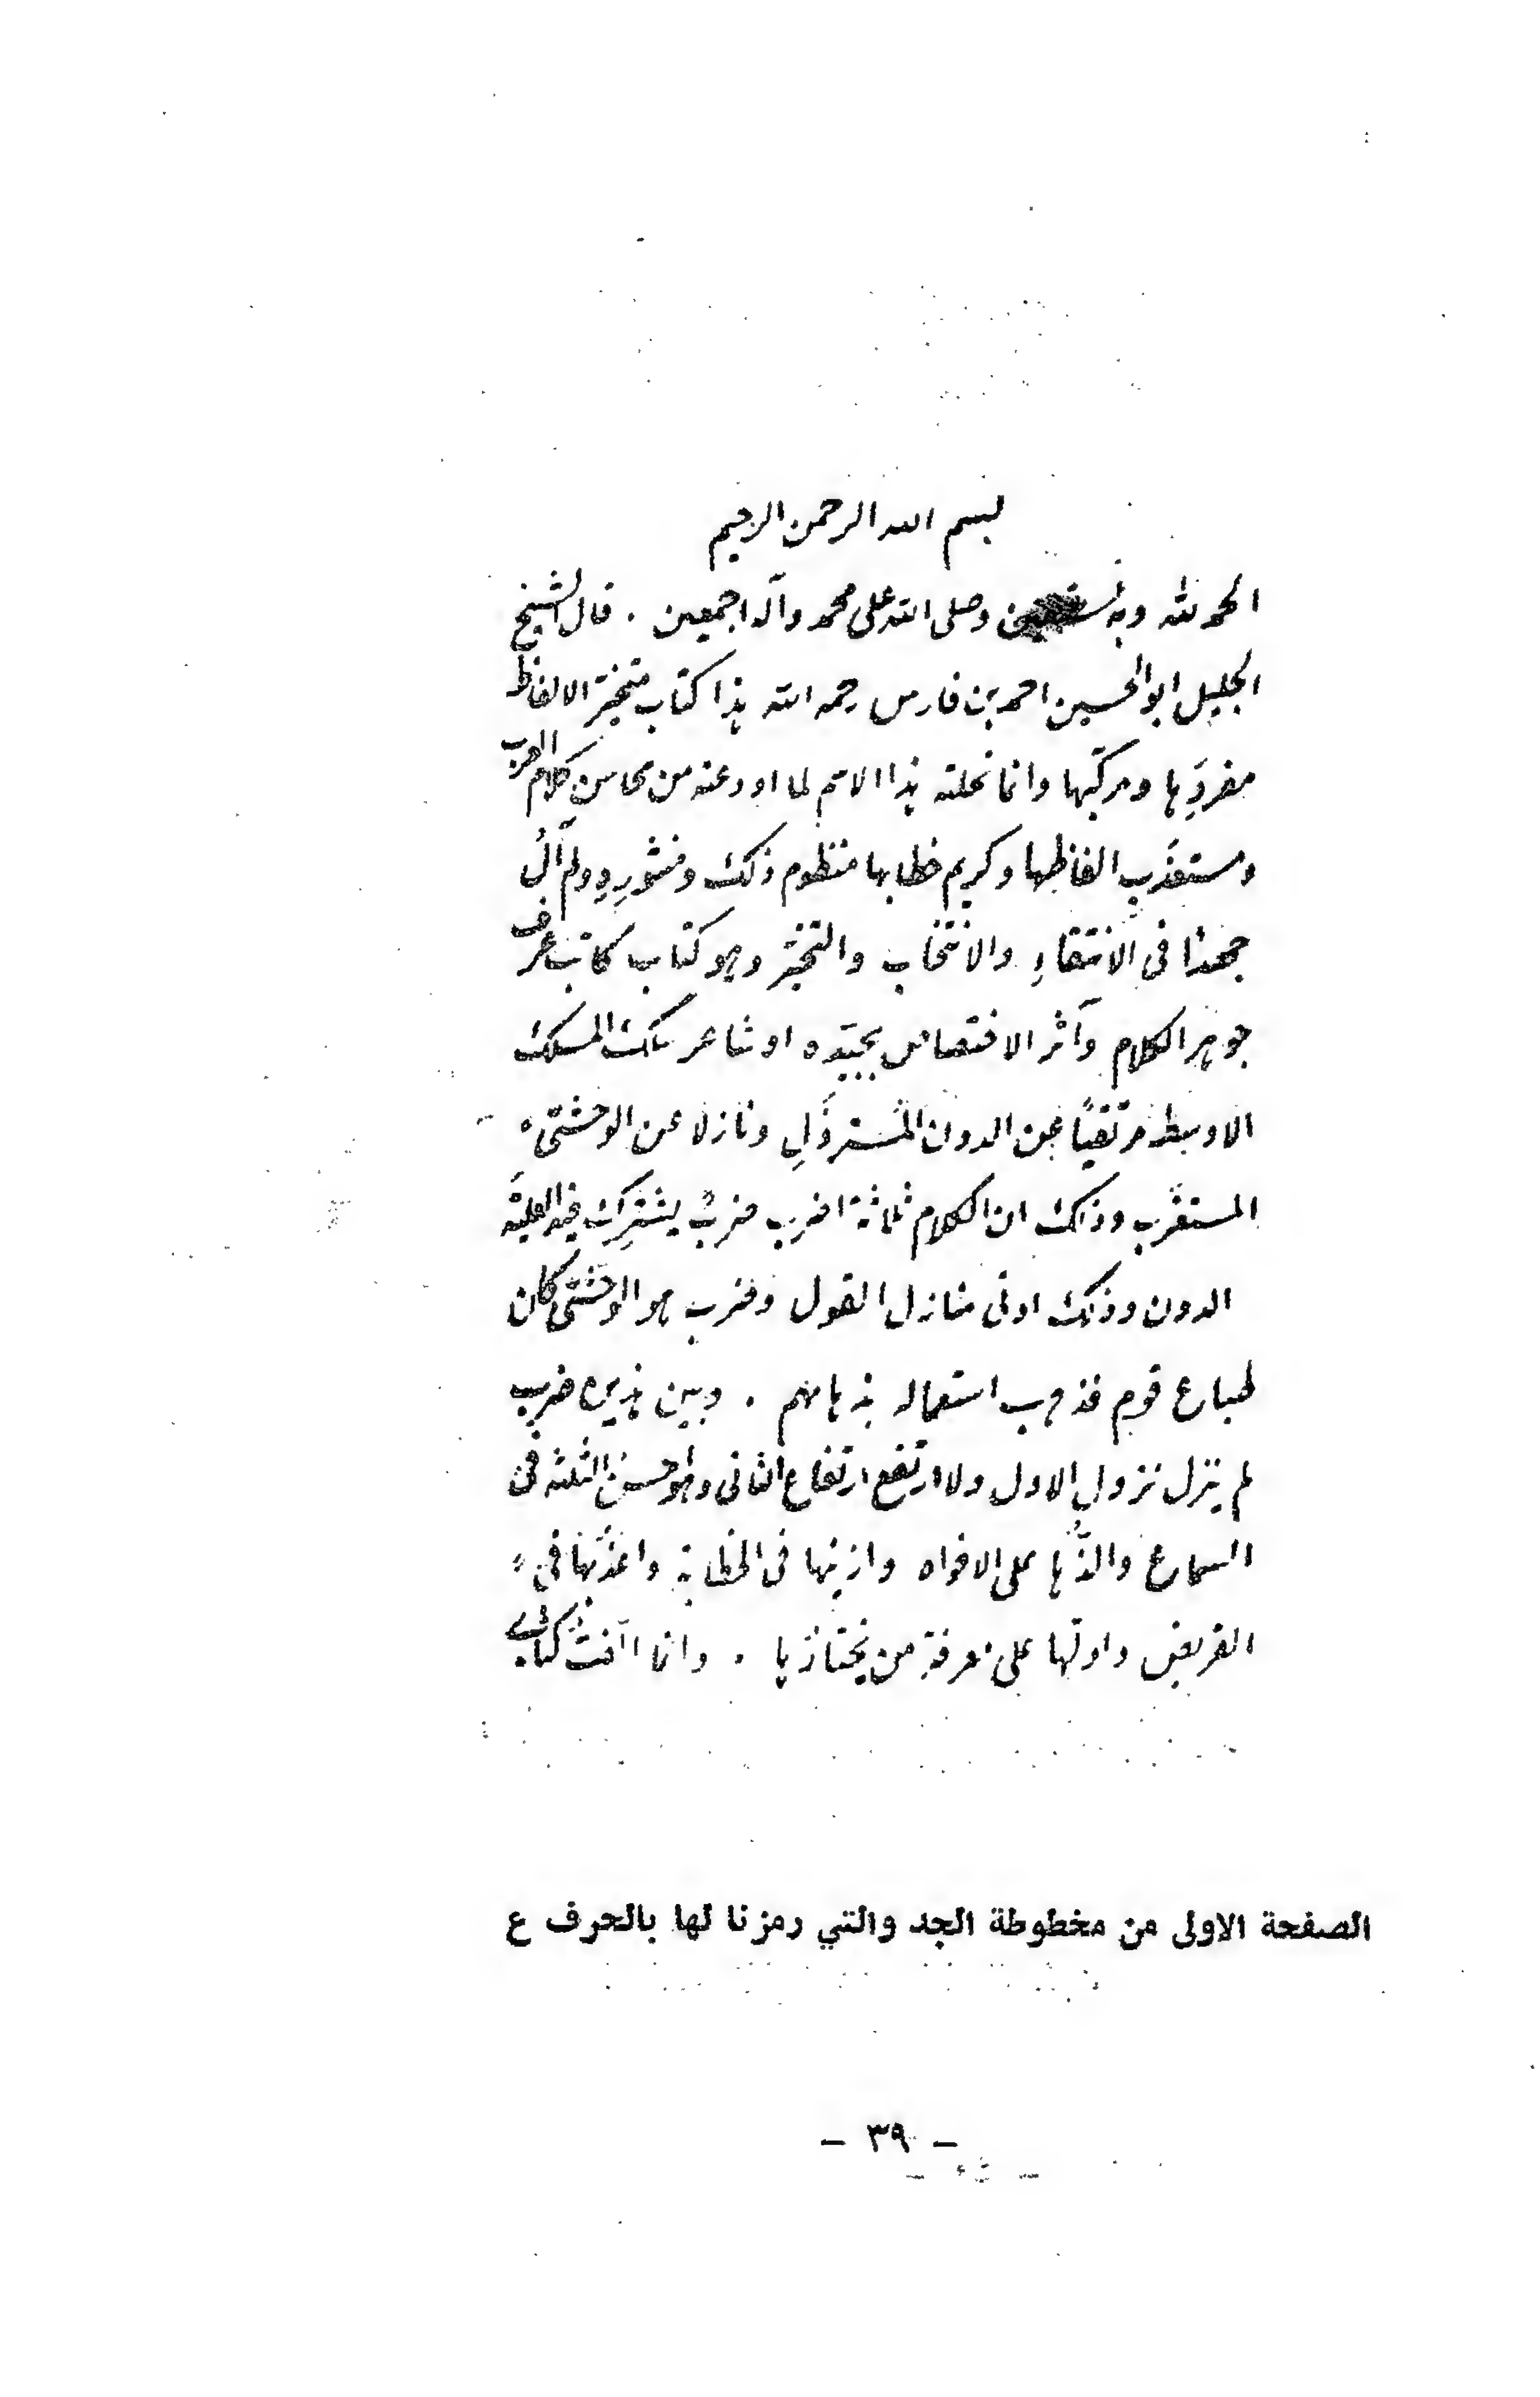 بسم الله الرحمن الرحيم
الحمد لله وبه نستعين وصلى الله على محمد وآله اجمعين . قال الشيخ
الجليل ابو الحسين احمد بن فارس رحمه الله هذا كتاب متخيّر الالفاظ
مفردِها ومركبها وانما نحلته هذا الاسم لما اودعته من محاسن كلام العرب
ومستعذَبِ الفاظها وكريم خطابها منظوم ذلك ومنثورِه ولم آلُ
جهدًا فى الانتقاءِ والانتخاب والتخيّر وهو كتاب كاتب عرف
جوهر الكلام وآثر الاختصاص بجيّده او شاعر سلك المسلك
الاوسط مرتقيًا عن الدون المُسترذَلِ ونازلا عن الوحشىّ
المستغرب وذلك ان الكلام ثلاثة اضرب ضربٌ يشترِك فيه العِليَة
الدون وذلك ادنى منازل القول وضرب هو الوحشىّ كان
طباع قوم فذهب استعماله بذهابهم . وبين هذين ضرب
لم ينزل نزول الاول ولا ارتفع ارتفاع الثانى وهو احسن الثلثة فى
السماع والذُّها على الافواه وازينها فى الخطابة واعذبُها فى
القريض وادلّها على معرفة من يختارها . وانما الّفتُ كتابى
الصفحة الاولى من مخطوطة الجد والتي رمزنا لها بالحرف ع
– ٣٩ –